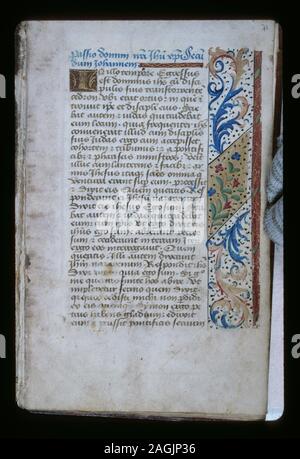 Passio domini nri Jhu xpi Secu
dum Johannem
In illo tempore Egressus
est dominus ihs cu disci
pulis suis trans torrente
cedron ubi erat ortus in que i
troiuit ipe et discipuli eius Scie
bat autem et iudas qui tradebat
eum locum quia frequenter ihs
convenerat illuc cum discipulis
suis Judas ergo cum accepisset
cohortem a pontifi
et phariseis ministros venit
illuc cum lanternis et facib et ar
mis Jhesus itaq sciens omnia
ventura erant sup eum processit
et dixit eis Quem queritis Res
ponderunt ei Jhesum nazarenum
Dicit eis Jhesus ego sum Sta
bat autem et iudas qui tradebat
eum
ego sum abierunt retror
sum et ceciderunt in terram
ergo eos interrogavit Quem
queritis Illi autem dixerunt
Jhm nazarenum Respondit ihs
Dixi vobis quia ego sum Si er
me queritis sinite hos abire Vt
impleretur sermo quem dixit
quia quos dedisti michi non pdidi
ex eis quemq Simon ergo pe
trus habens gladium eduxit
eum et percussit pontificis servum
alamy
Image ID: 2AGJP36
www.alamy.com